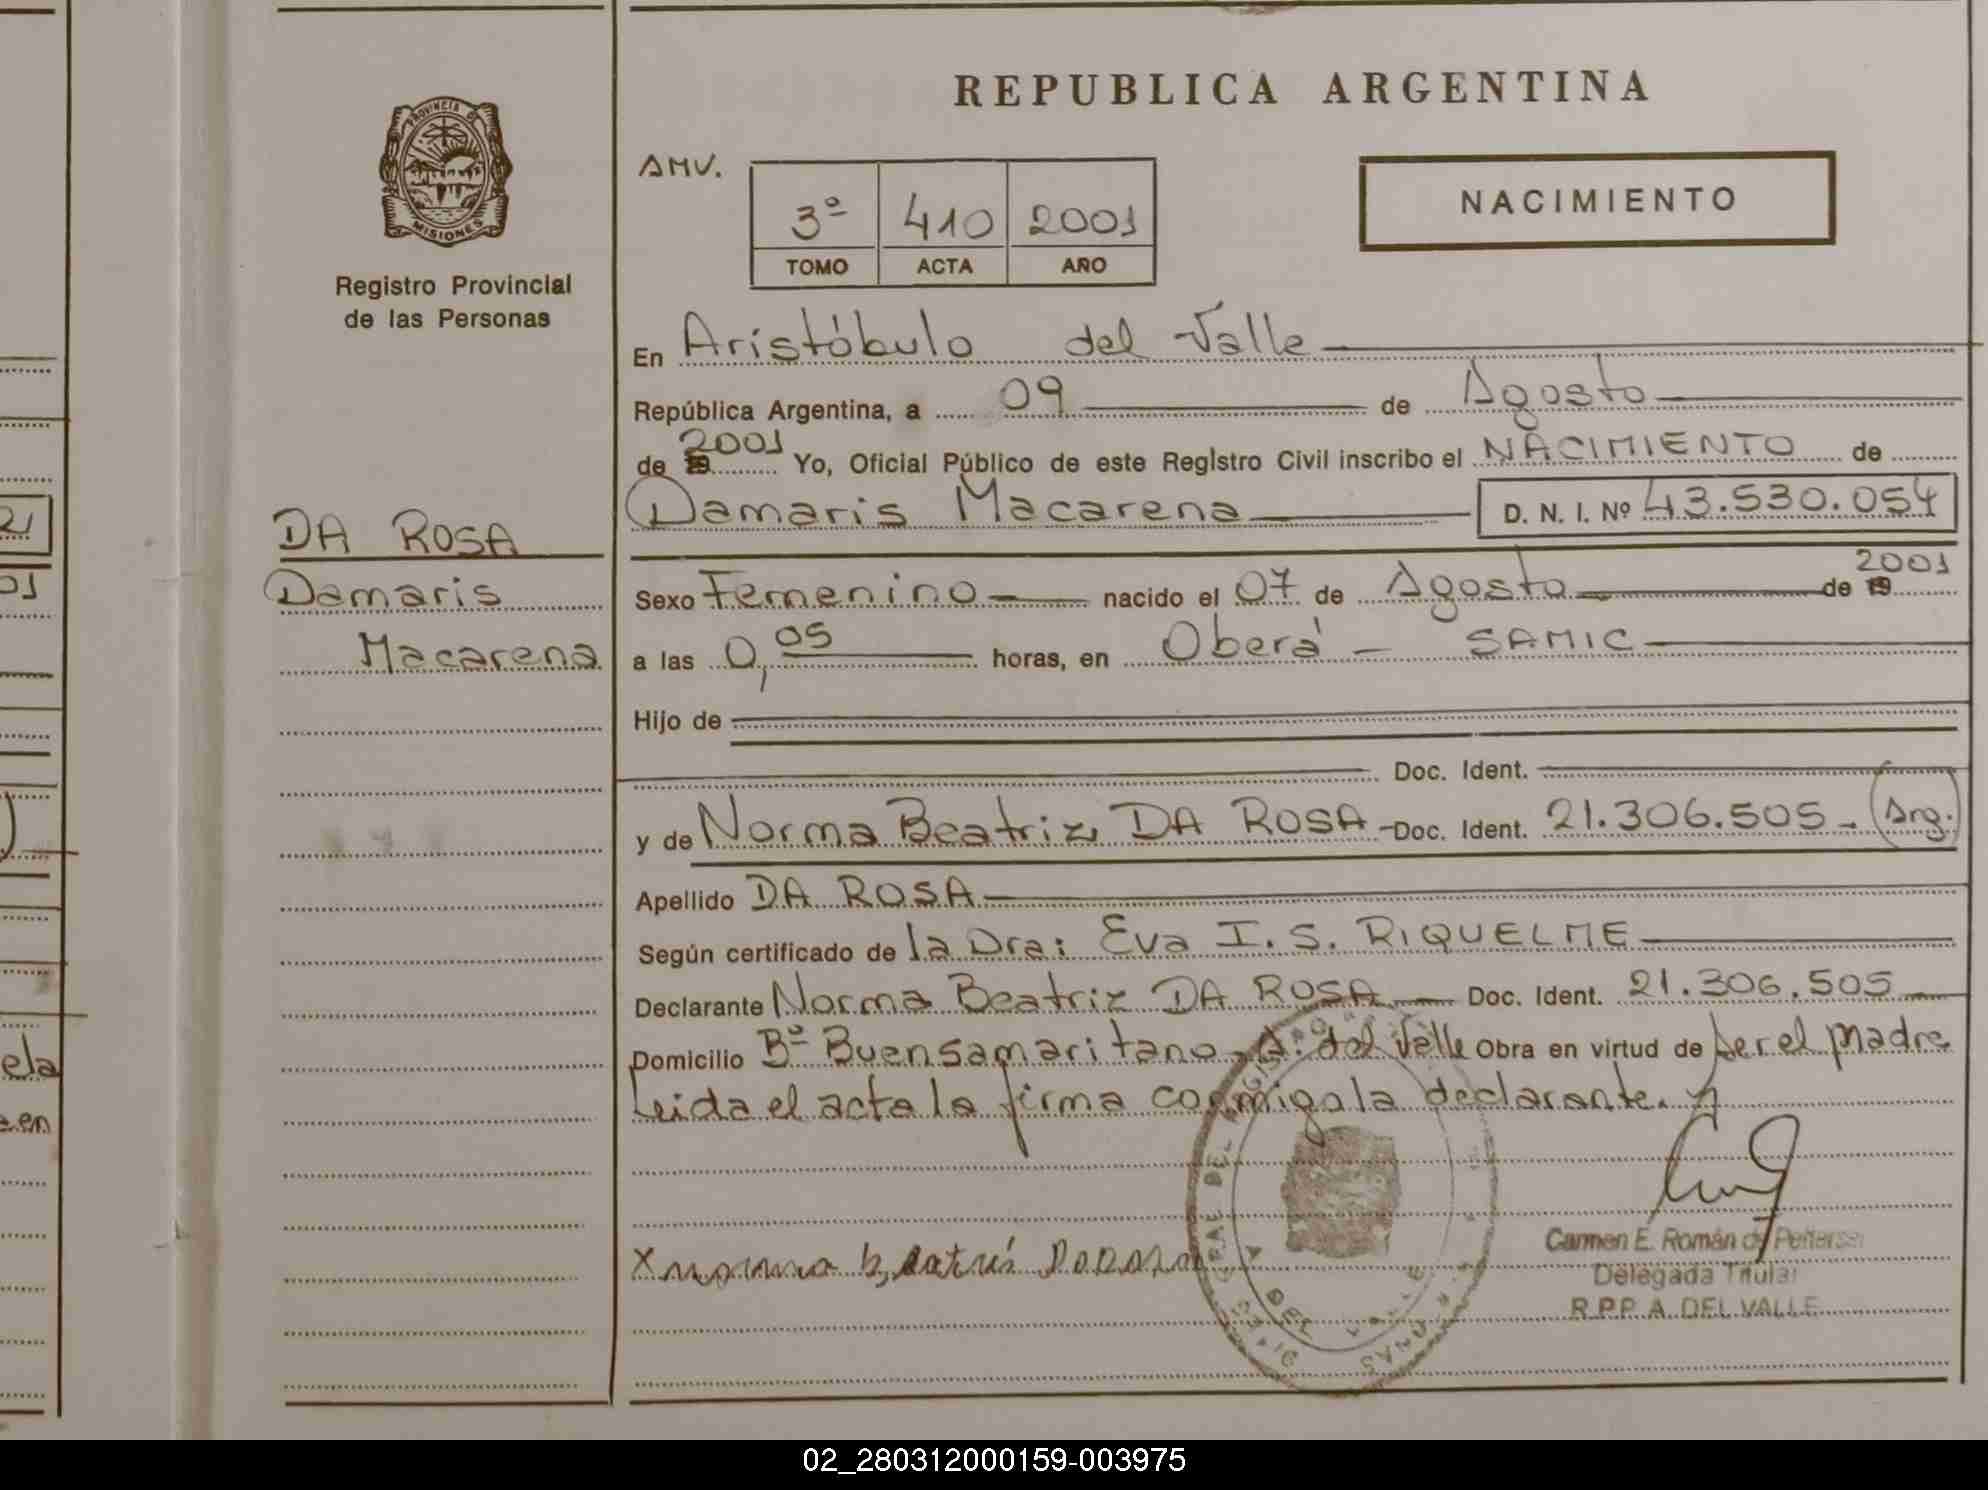 REPUBLICA ARGENTINA
PROVINCIA DE MISIONES
Registro Provincial
de las Personas
AMV.
3º 410 2001
TOMO ACTA AÑO
NACIMIENTO
En Aristóbulo del Valle
República Argentina, a 09 de Agosto
de 19 2001 Yo, Oficial Público de este Registro Civil inscribo el NACIMIENTO de
Damaris Macarena D. N. I. Nº 43.530.054
DA ROSA
Damaris
Macarena
Sexo Femenino nacido el 07 de Agosto de 19 2001
a las 0,05 horas, en Oberá - SAMIC
Hijo de
Doc. Ident.
y de Norma Beatriz DA ROSA - Doc. Ident. 21.306.505 - (Arg.)
Apellido DA ROSA
Según certificado de la Dra: Eva I. S. RIQUELME
Declarante Norma Beatriz DA ROSA - Doc. Ident. 21.306.505
Domicilio Bº Buensamaritano - A. del Valle Obra en virtud de ser el madre
Leida el acta la firma conmigo la declarante.
Carmen E. Román de
Delegada Titular
R.P.P. A. DEL VALLE
21
01
ela
en
02_280312000159-003975